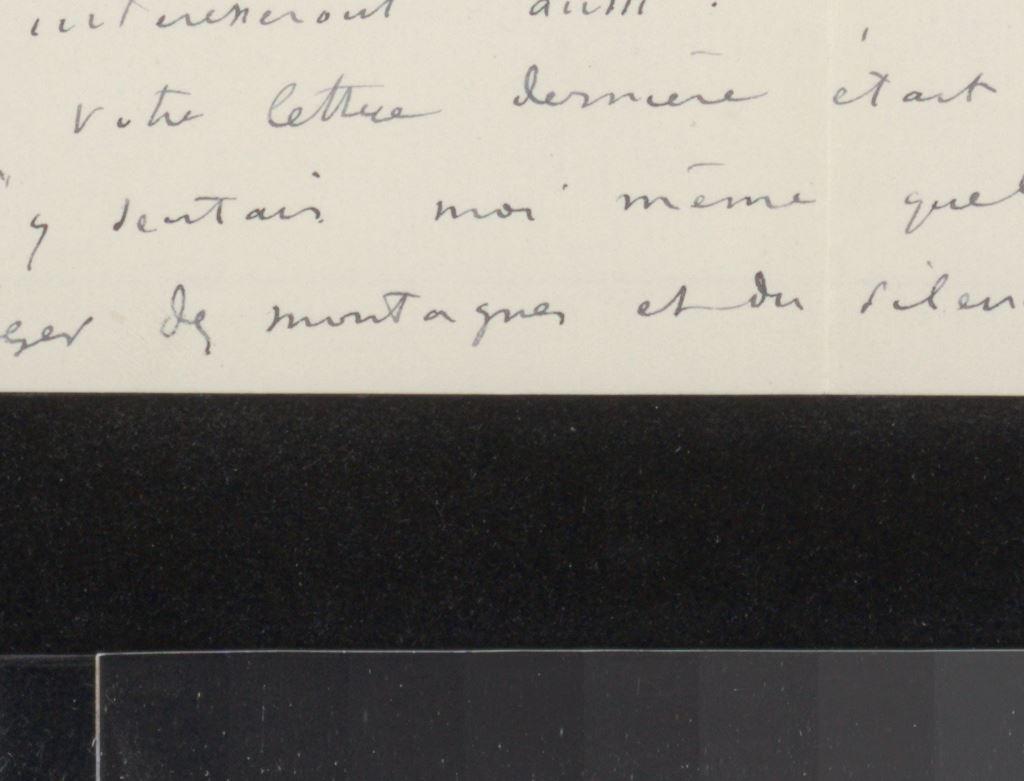 intéresseront aussi.
Votre lettre dernière était
y sentais moi même quel
des montagnes et du silen